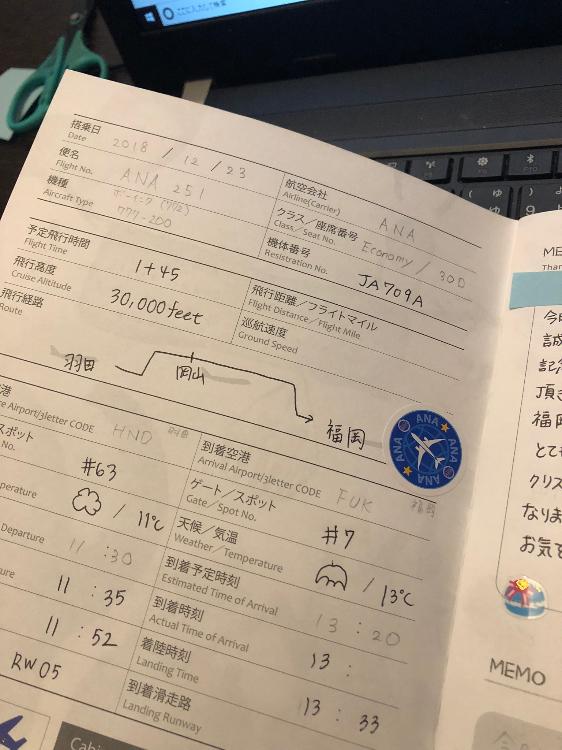 ここに入力して検索
搭乗日 2018 / 12 / 23
Date
航空会社 ANA
Airline(Carrier)
便名 ANA 251
Flight No.
クラス／座席番号 Economy / 30D
Class／Seat No.
機種 ボーイング
Aircraft Type 777-200
機体番号 JA709A
Resistration No.
予定飛行時間 1+45
Flight Time
飛行距離／フライトマイル
Flight Distance／Flight Mile
飛行高度 30,000feet
Cruise Altitude
巡航速度
Ground Speed
飛行経路
Route
羽田
岡山
福岡
ANA ANA ANA ANA
港 HND 羽田
re Airport/3letter CODE
到着空港 FUK 福岡
Arrival Airport/3letter CODE
スポット #63
No.
ゲート／スポット #7
Gate／Spot No.
/ 11℃
perature
天候／気温 / 13℃
Weather／Temperature
11 : 30
Departure
到着予定時刻 13 : 20
Estimated Time of Arrival
11 : 35
ture
到着時刻 13 :
Actual Time of Arrival
11 : 52
着陸時刻 13 : 33
Landing Time
RW05
到着滑走路
Landing Runway
Cabi
ME
Than
今
誠
記念
頂き
福岡
とても
クリス
なりま
お気を
MEMO